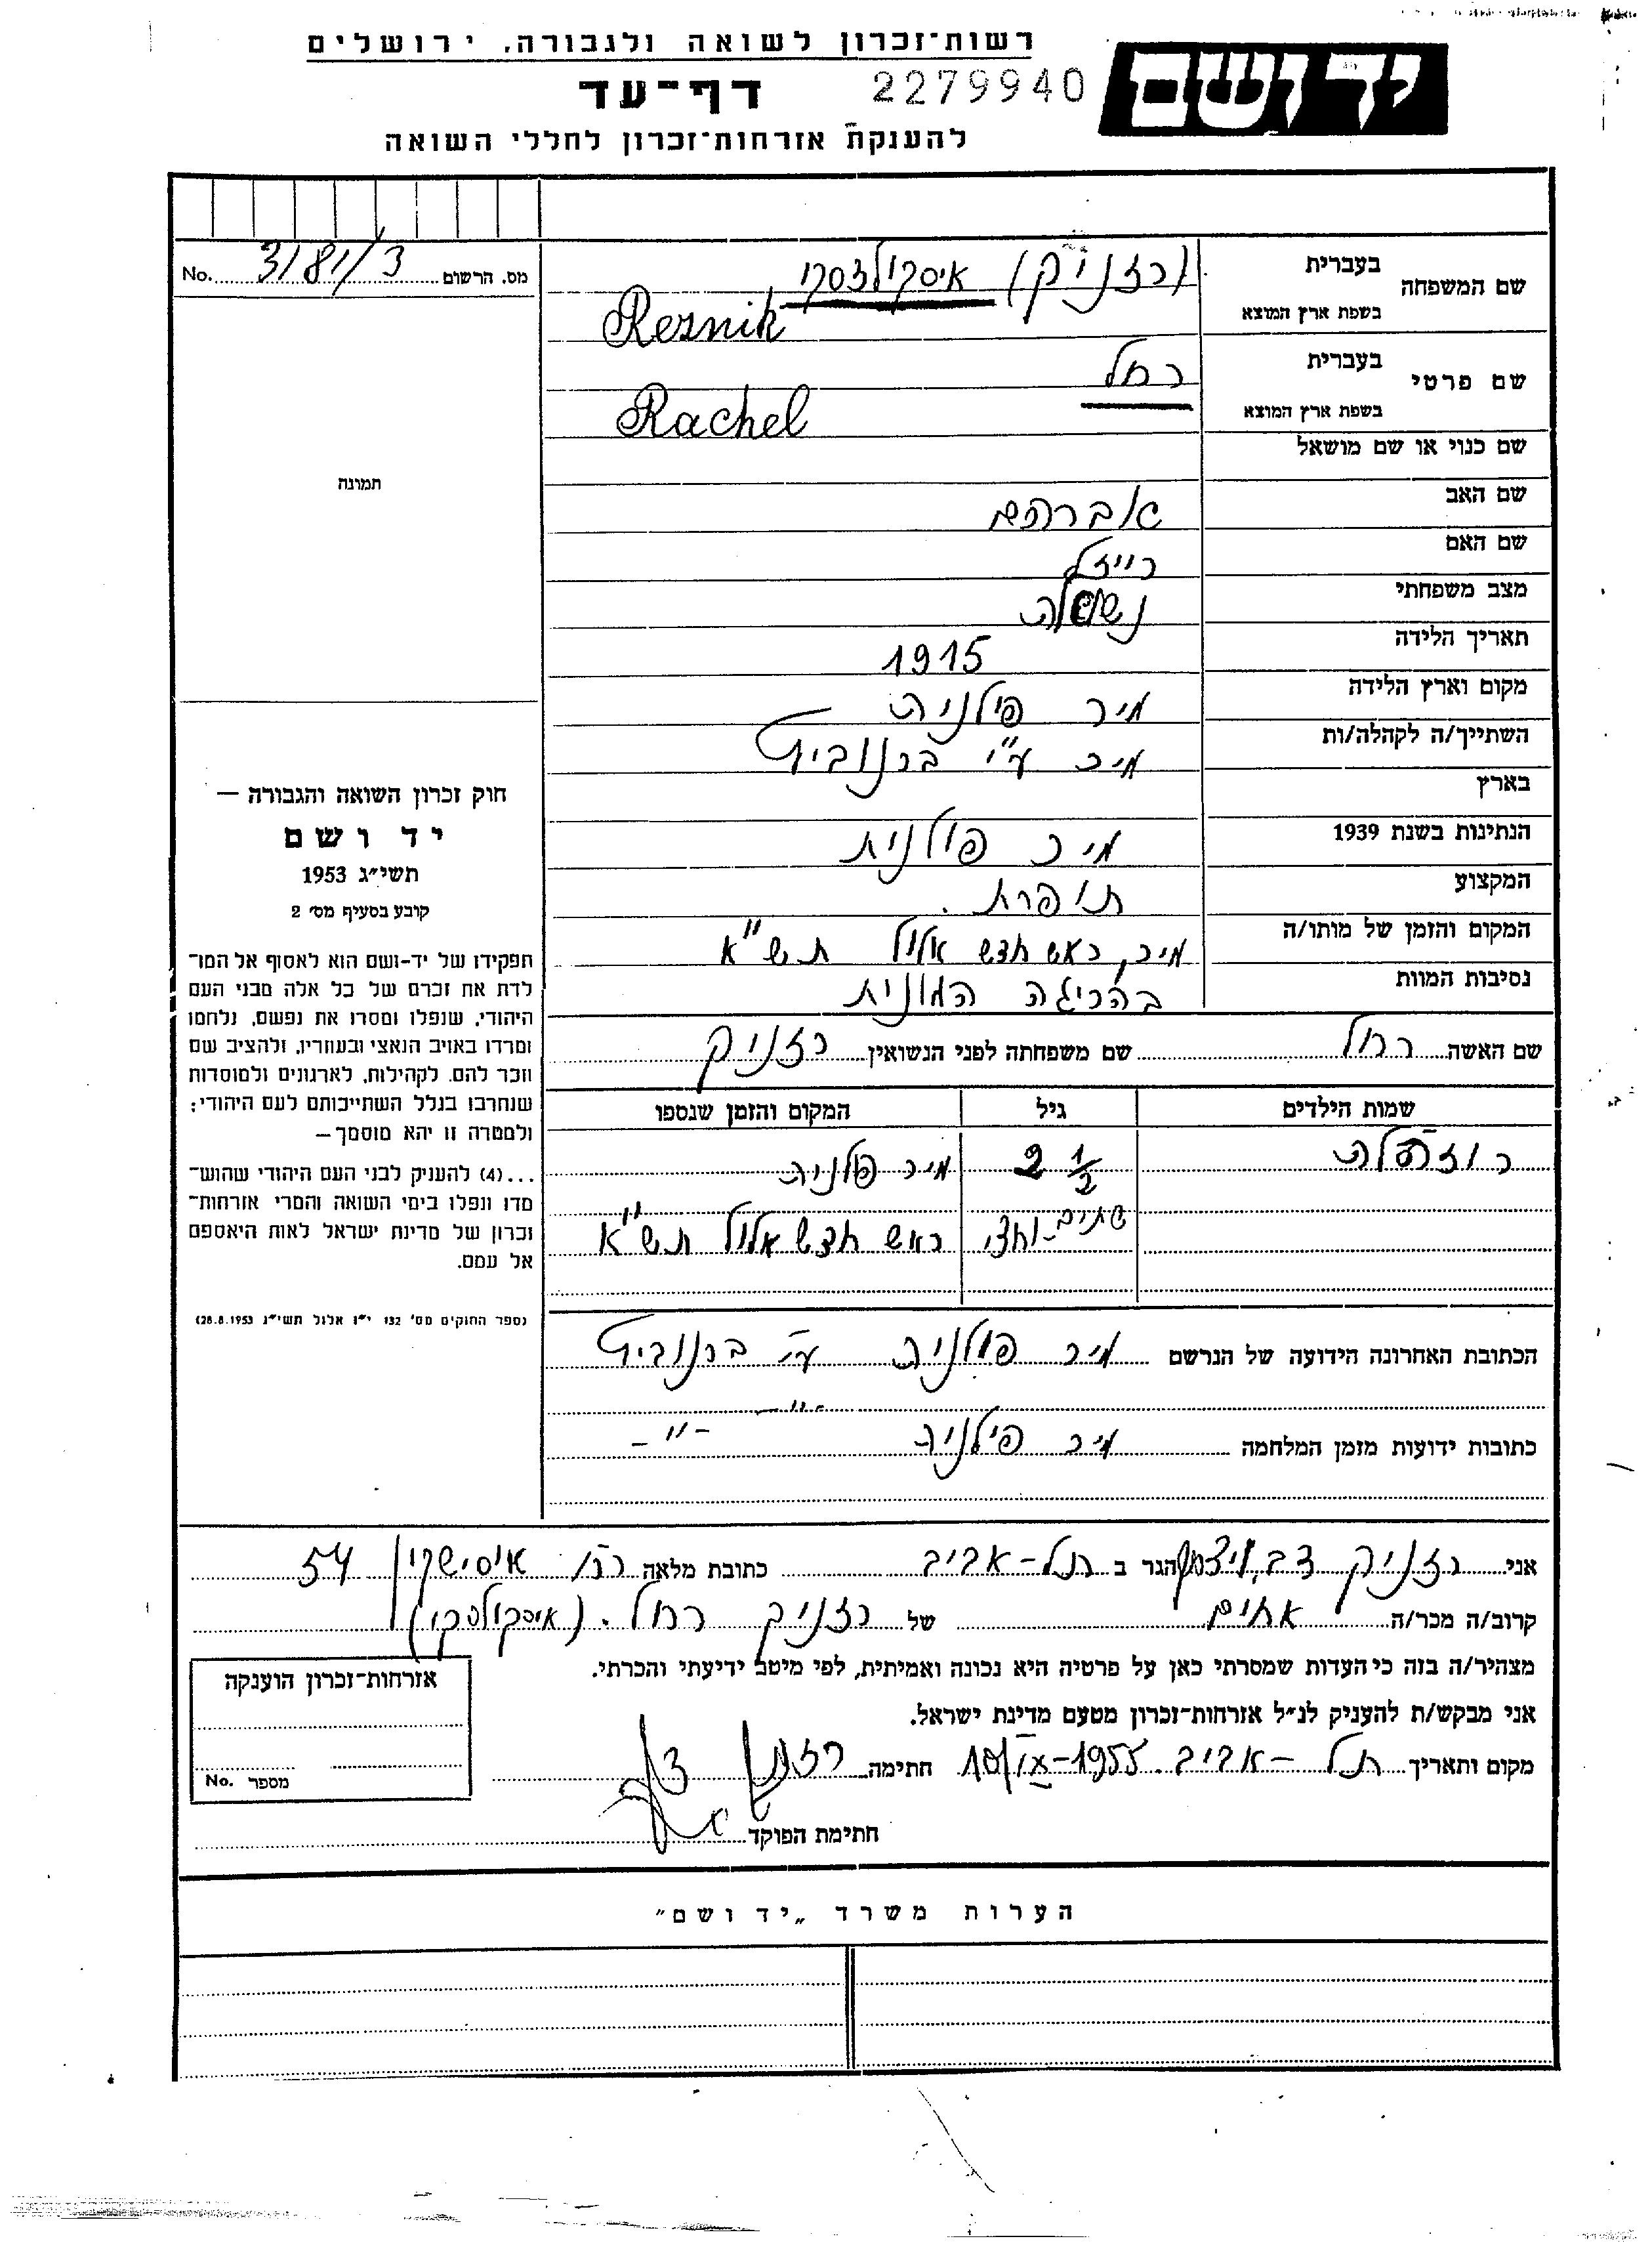 רשות־זכרון לשואה ולגבורה, ירושלים
יד ושם
דף־עד 2279940
להענקת אזרחות־זכרון לחללי השואה
מס. הרשום 3181/3 No.
שם המשפחה
בעברית (רזניק) איסקולדסקי
בשפת ארץ המוצא Resnik
שם פרטי
בעברית רחל
בשפת ארץ המוצא Rachel
שם כנוי או שם מושאל
שם האב אברהם
שם האם רייזל
מצב משפחתי נשואה
תאריך הלידה 1915
מקום וארץ הלידה מיר פולניה
השתייך/ה לקהלה/ות מיר ע"י ברנוביץ
בארץ
הנתינות בשנת 1939 מיר פולנית
המקצוע תופרת.
המקום והזמן של מותו/ה מיר, ראש חדש אלול תש"א
נסיבות המוות בהריגה המונית
שם האשה רחל שם משפחתה לפני הנשואין רזניק
שמות הילדים גיל המקום והזמן שנספו
2 1/2 מיר פולניה
שתים-וחצי ראש חדש אלול תש"א
הכתובת האחרונה הידועה של הנרשם מיר פולניה ע"י ברנוביץ
-"-
כתובות ידועות מזמן המלחמה מיר פולניה -"-
תמונה
חוק זכרון השואה והגבורה —
יד ושם
תשי״ג 1953
קובע בסעיף מס׳ 2
תפקידו של יד-ושם הוא לאסוף אל המו־
לדת את זכרם של כל אלה מבני העם
היהודי, שנפלו ומסרו את נפשם, נלחמו
ומרדו באויב הנאצי ובעוזריו, ולהציב שם
וזכר להם, לקהילות, לארגונים ולמוסדות
שנחרבו בגלל השתייכותם לעם היהודי;
ולמטרה זו יהא מוסמך—
...(4) להעניק לבני העם היהודי שהוש־
מדו ונפלו בימי השואה והמרי אזרחות־
זכרון של מדינת ישראל לאות היאספם
אל עמם.
(ספר החוקים מס׳ 132 י״ז אלול תשי״ג 28.8.1953)
אני רזניק דב, הגר ב תל-אביב כתובת מלאה רח' אוסישקין 54
קרוב/ה מכר/ה אחים של רזניק רחל. (איסקולסקי)
מצהיר/ה בזה כי העדות שמסרתי כאן על פרטיה היא נכונה ואמיתית, לפי מיטב ידיעתי והכרתי.
אני מבקש/ת להעניק לנ״ל אזרחות־זכרון מטעם מדינת ישראל.
מקום ותאריך תל-אביב 10/IX-1955 חתימה רזניק דב
חתימת הפוקד
אזרחות־זכרון הוענקה
מספר No.
הערות משרד „יד ושם״